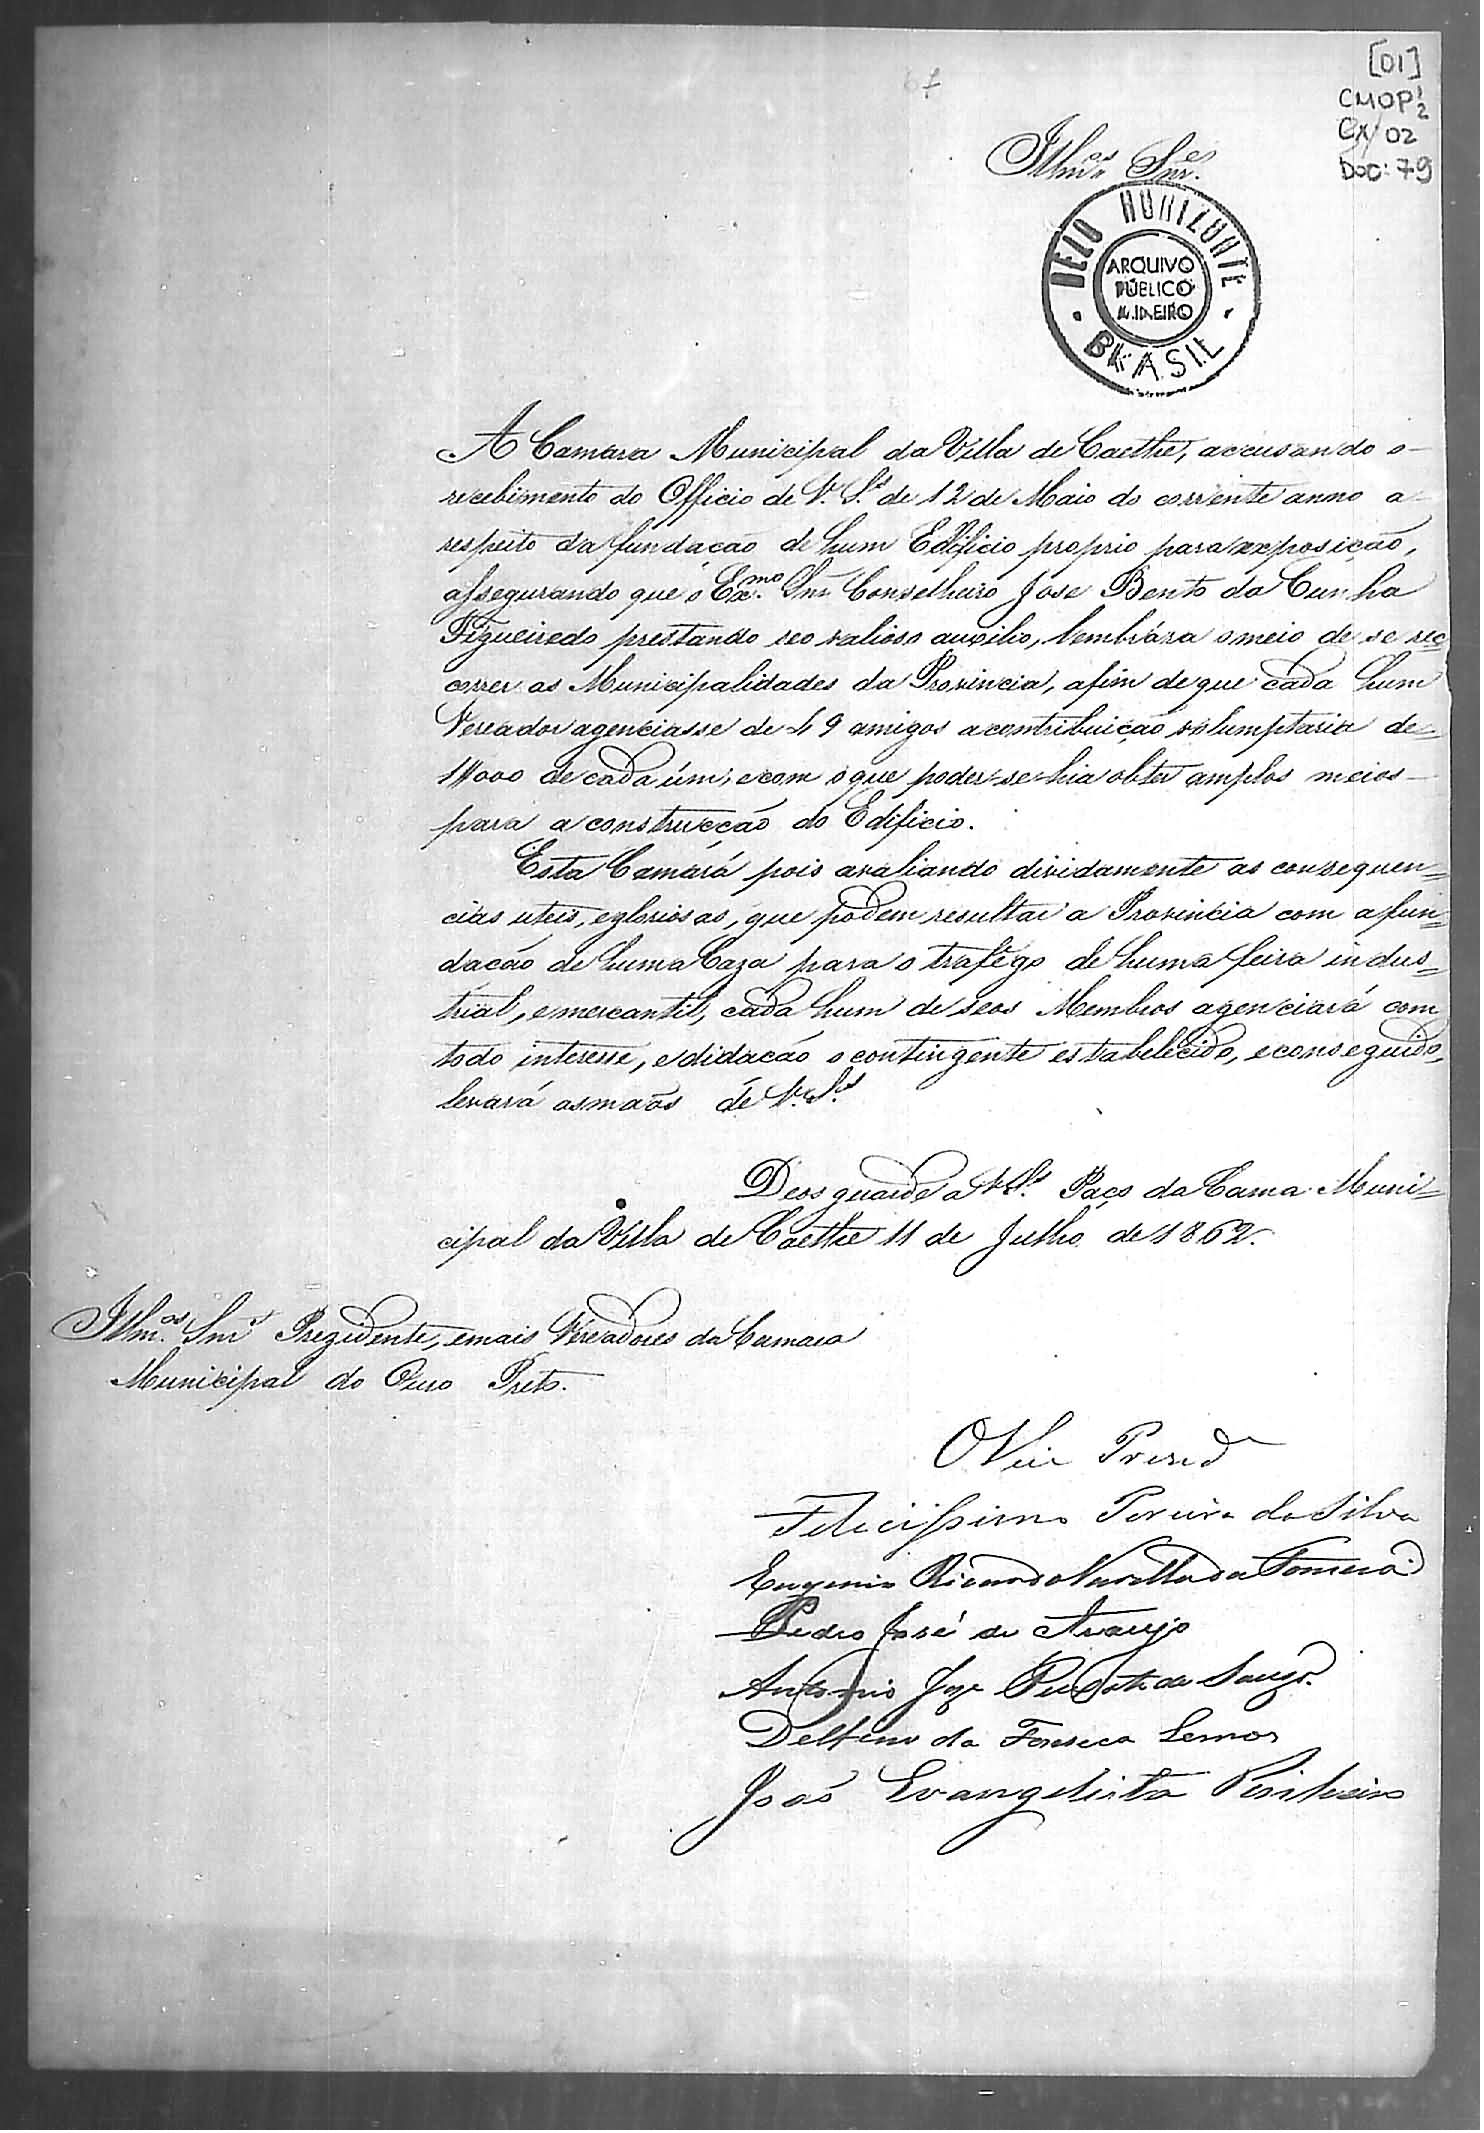 [01]
CMOP 1/2
CX/02
DOC: 79
67
Illm.os Snr.es
BELO HORIZONTE
ARQUIVO
PÚBLICO
MINEIRO
BRASIL
A Camara Municipal da Villa de Caethe, accusando o
recebimento do Officio de V. S.as de 12 de Maio do corrente anno a
respeito da fundação de hum Edificio proprio para exposição,
assegurando que o Ex.mo Snr. Conselheiro Jose Bento da Cunha
Figueiredo prestando seo valioso auxilio, lembrára o meio de se rec=
correr as Municipalidades da Provincia, afim de que cada hum
Vereador agenciasse de 49 amigos a contribuição volumptaria de
1$000 de cada úm, e com o que poder-se-hia obter amplos meios
para a construcção do Edificio.
Esta Camará pois avaliando dividamente as consequen=
cias uteis, e gloriosas, que podem resultar a Provincia com a fun=
dacão de huma Caza para o trafêgo de huma feira indus=
trial, e mercantil, cada hum de seos Membros agenciará com
todo interesse, e didacão o contingente estabelecido, e conseguido,
levará as maõs de V. S.as
Deos guarde a V. S.as Paço da Cama. Muni=
cipal da Villa de Caethe 11 de Julho de 1862.
Illm.os Snr.s Prezidente, e mais Vereadores da Camara
Municipal do Ouro Preto.
O Vice Presid
Felicissimo Pereira da Silva
Eugenio Ricardo Varella da Fonseca
Pedro José de Araujo
Antonio Joze da Souza.
Delfino da Fonseca Lemos
Joaõ Evangelista